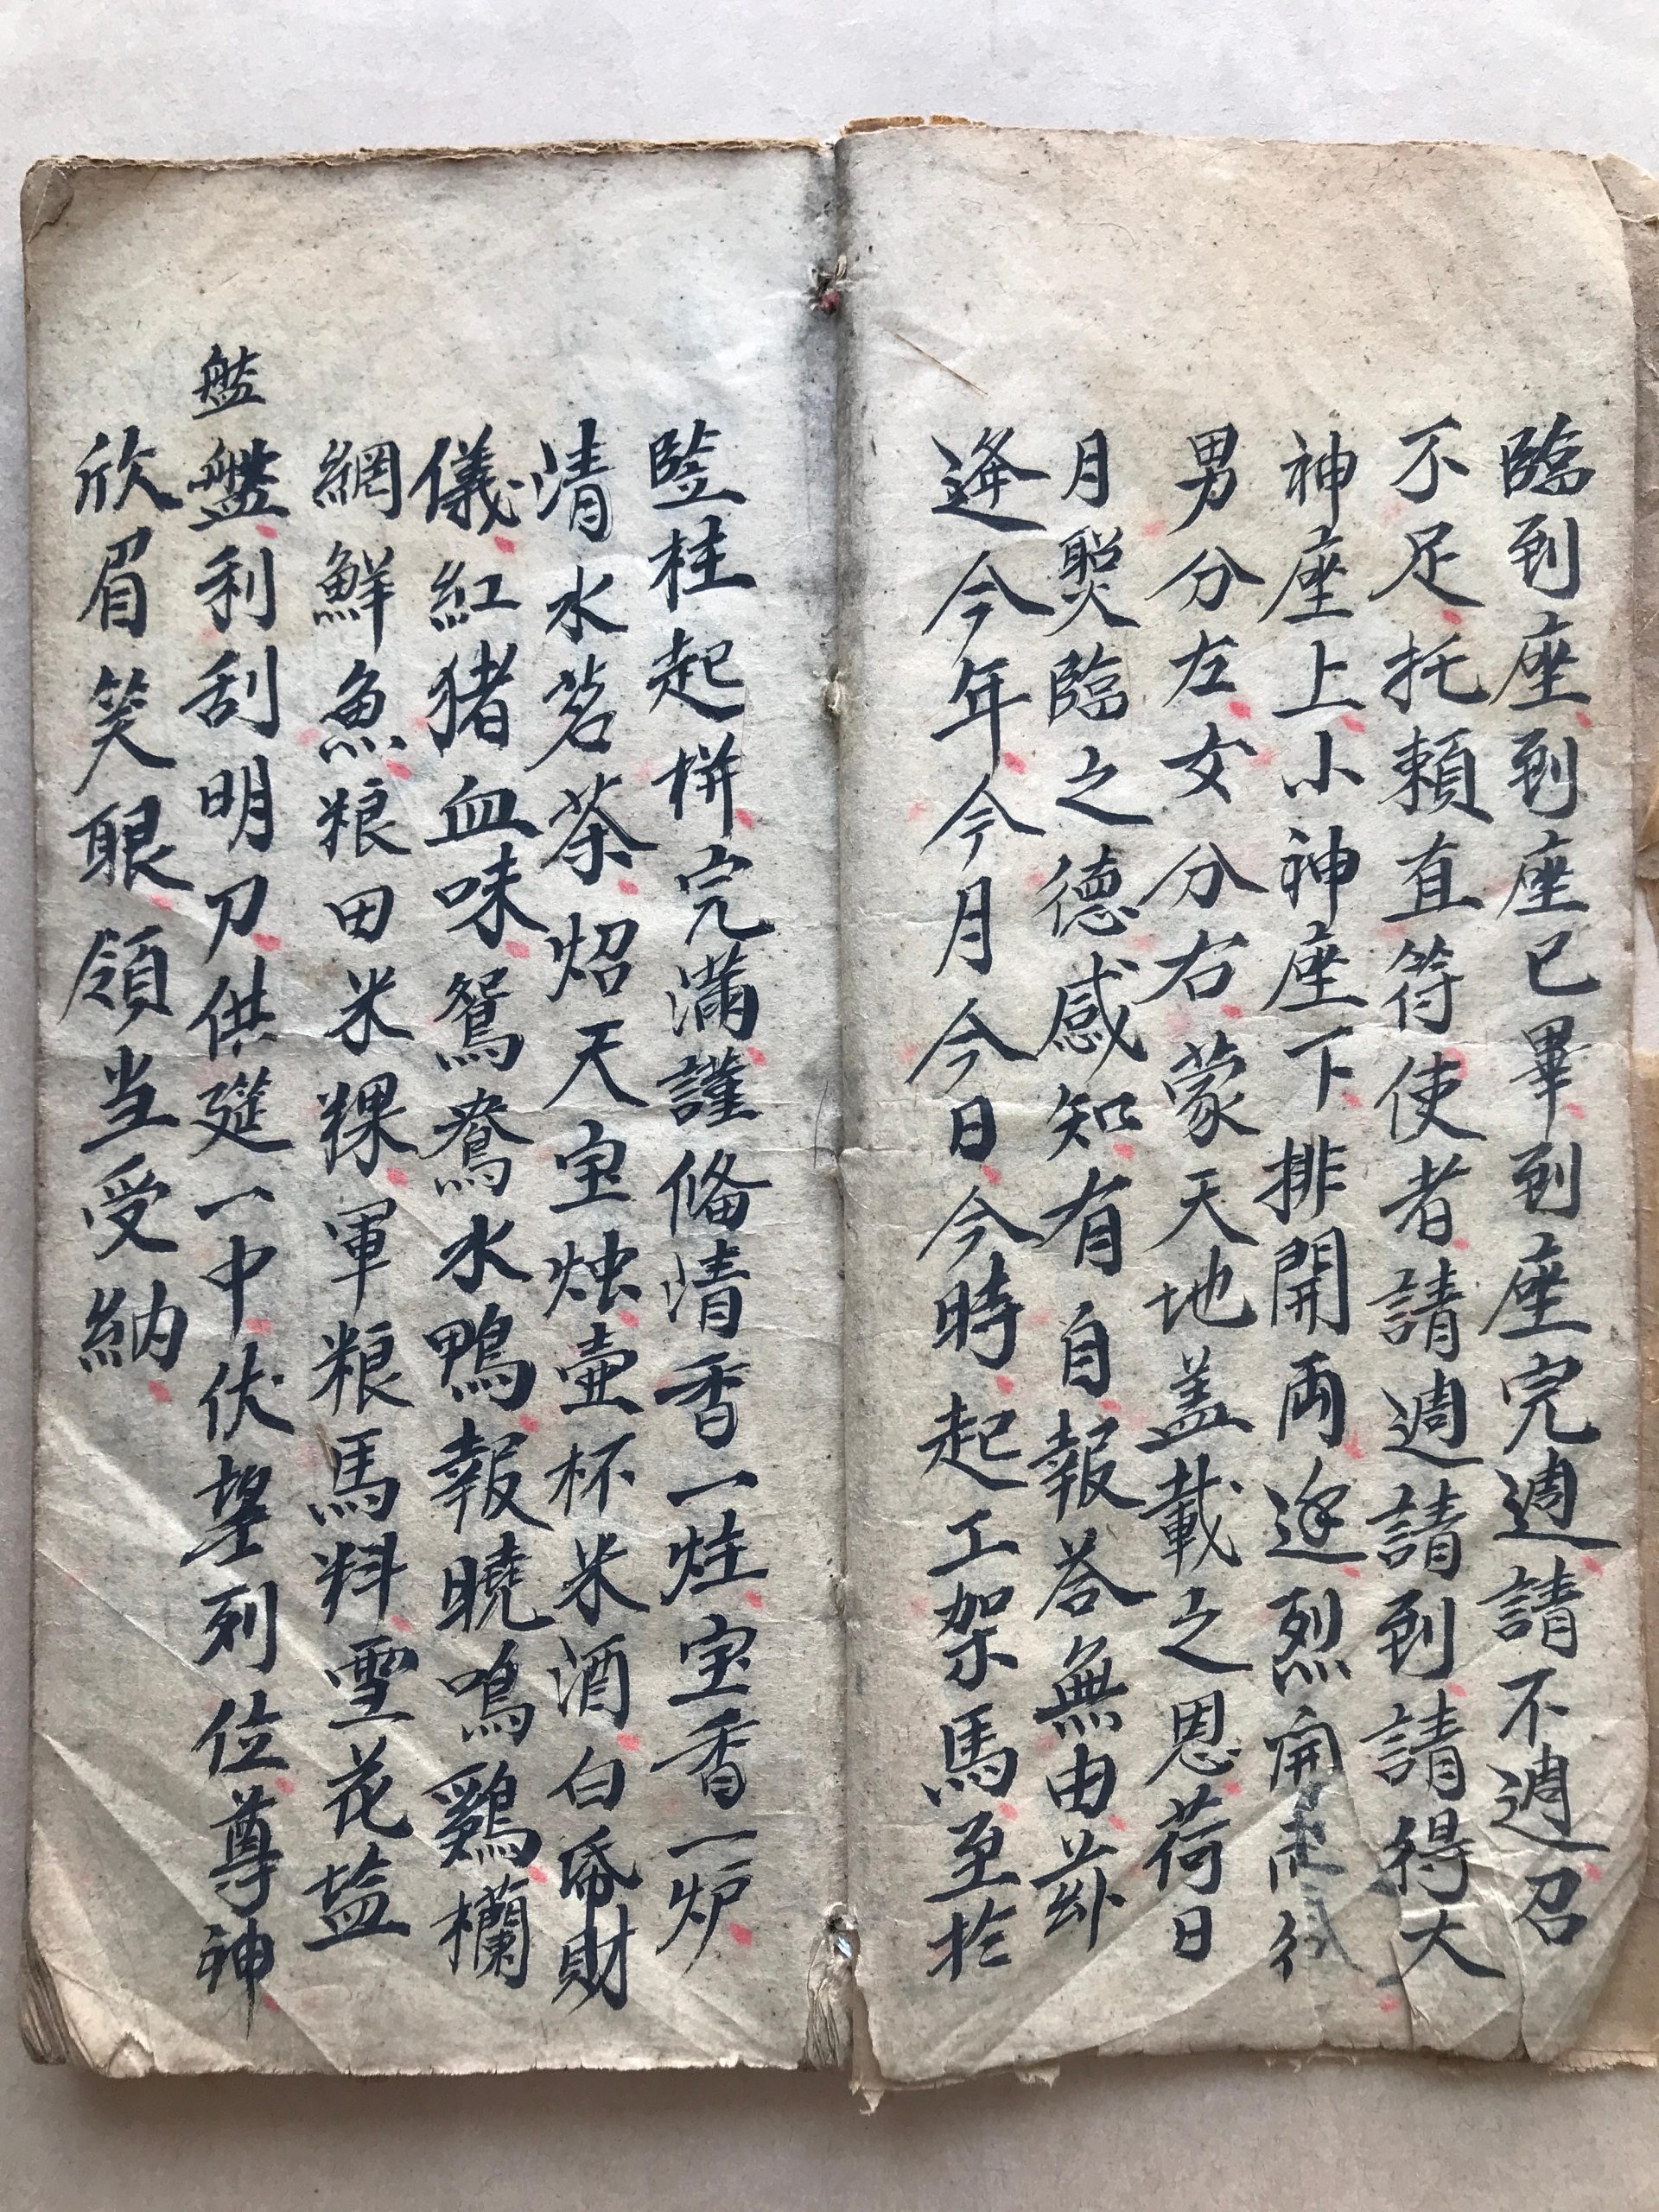 臨到座到座已畢到座完週請不週召
不足托賴直符使者請週請到請得大
神座上小神座下排開兩边烈開兩行
男分左女分右蒙天地盖載之恩荷日
月照臨之德感知有自報荅無由玆
逢今年今月今日今時起工架馬至扵
竪桂起栟完滿謹俻清香一炷宝香一炉
清水茗茶炤天宝烛壷杯米酒白帋財
儀紅猪血味鴛鴦水鴨報曉鳴鷄欄
網鮮魚粮田米粿軍粮馬料雪花盐
盤
盤利刮明刀供筵一中伏望列位尊神
欣眉笑眼領当受納